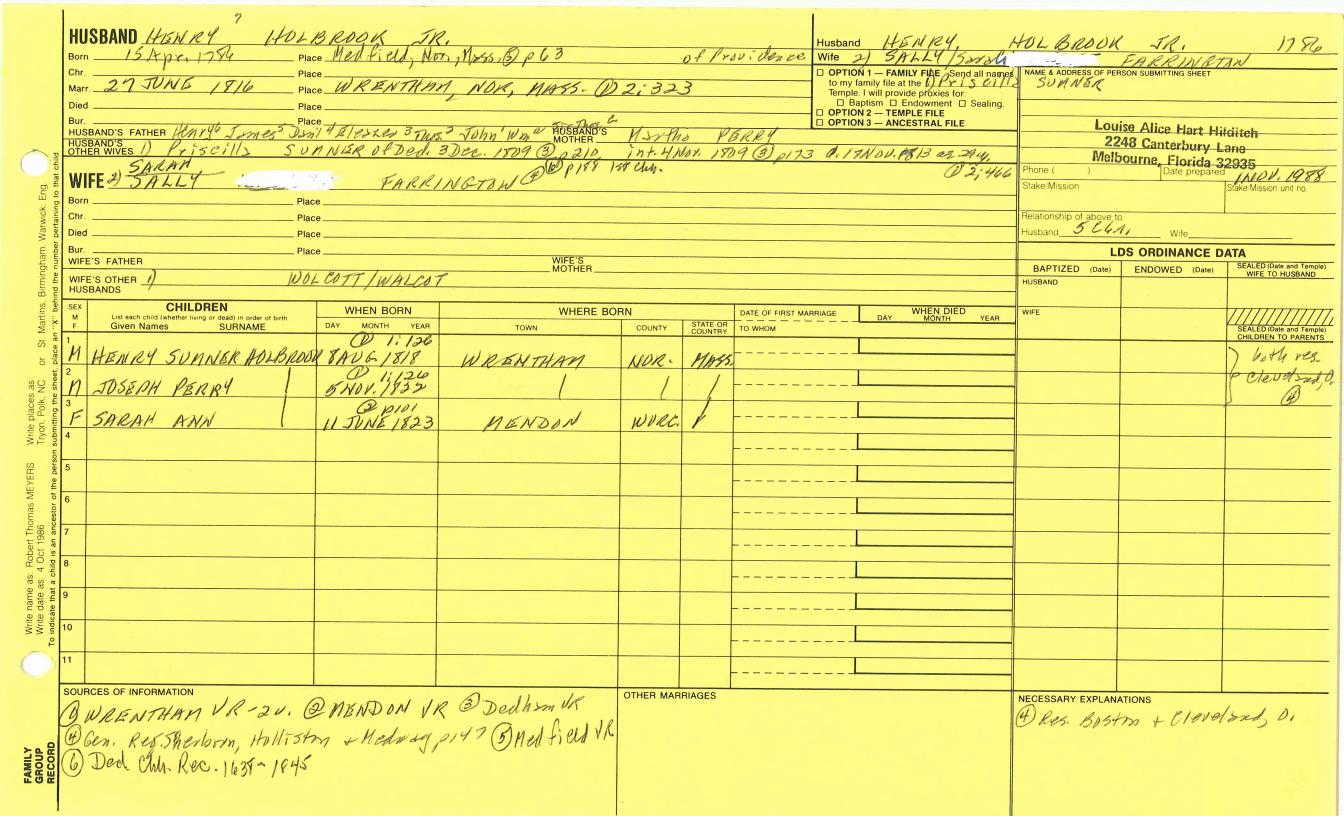 7
HUSBAND HENRY HOLBROOK JR.
Born 15 Apr. 1786 Place Medfield, Nor., Mass. ⑤ p 63 of Providence
Chr. Place
Marr 27 JUNE 1816 Place WRENTHAM, NOR, MASS. ① 2:323
Died Place
Bur. Place
HUSBAND'S FATHER Henry⁶ James⁵ Daniel⁴ Eleazer³ Thos² John Wm HUSBAND'S MOTHER Martha PERRY
HUSBAND'S OTHER WIVES 1) Priscilla SUMNER of Ded. 3 Dec. 1809 ③ p 210 int. 4 Nov. 1809 ③ p173 d. 17 NOV. 1813 ae 24y.
SARAH ⑥ p 188 1st Chh. ① 2:466
WIFE 2) SALLY FARRINGTON ④
Born Place
Chr. Place
Died Place
Bur. Place
WIFE'S FATHER WIFE'S MOTHER
WIFE'S OTHER HUSBANDS 1) WOLCOTT/WALCOT
Husband HENRY, HOLBROOK JR. 1786
Wife 2) SALLY/Sarah FARRINGTON
1) Priscilla SUMNER
OPTION 1 — FAMILY FILE Send all names
to my family file at the
Temple. I will provide proxies for
Baptism Endowment Sealing.
OPTION 2 — TEMPLE FILE
OPTION 3 — ANCESTRAL FILE
NAME & ADDRESS OF PERSON SUBMITTING SHEET
Louise Alice Hart Hilditch
2248 Canterbury Lane
Melbourne, Florida 32935
Phone ( ) Date prepared 1 NOV. 1988
Stake/Mission Stake/Mission unit no.
Relationship of above to
Husband 5 Wife
LDS ORDINANCE DATA
BAPTIZED (Date) ENDOWED (Date) SEALED (Date and Temple) WIFE TO HUSBAND
HUSBAND
WIFE
SEALED (Date and Temple) CHILDREN TO PARENTS
SEX M F
CHILDREN
List each child (whether living or dead) in order of birth
Given Names SURNAME
WHEN BORN
DAY MONTH YEAR
WHERE BORN
TOWN COUNTY STATE OR COUNTRY
DATE OF FIRST MARRIAGE
TO WHOM
WHEN DIED
DAY MONTH YEAR
1 ① 1:126
M HENRY SUMNER HOLBROOK 8 AUG 1818 WRENTHAM NOR. MASS.
2 ① 1:126
M JOSEPH PERRY 5 NOV. 1822
3 ② p101
F SARAH ANN 11 JUNE 1823 MENDON WORC.
both res. Cleveland, O. ④
4
5
6
7
8
9
10
11
SOURCES OF INFORMATION
① WRENTHAM VR-2v. ② MENDON VR ③ Dedham VR
④ Gen. Reg. Sherborn, Holliston + Medway p147 ⑤ Medfield VR
⑥ Ded Chh. Rec. 1638-1845
OTHER MARRIAGES
NECESSARY EXPLANATIONS
④ Res. Boston + Cleveland, O.
Write name as: Robert Thomas MEYERS Write places as: Tryon, Polk, NC or St Martins, Birmingham, Warwick, Eng
Write date as: 4 Oct 1986
To indicate that a child is an ancestor of the person submitting the sheet, place an "X" behind the number pertaining to that child
FAMILY
GROUP
RECORD